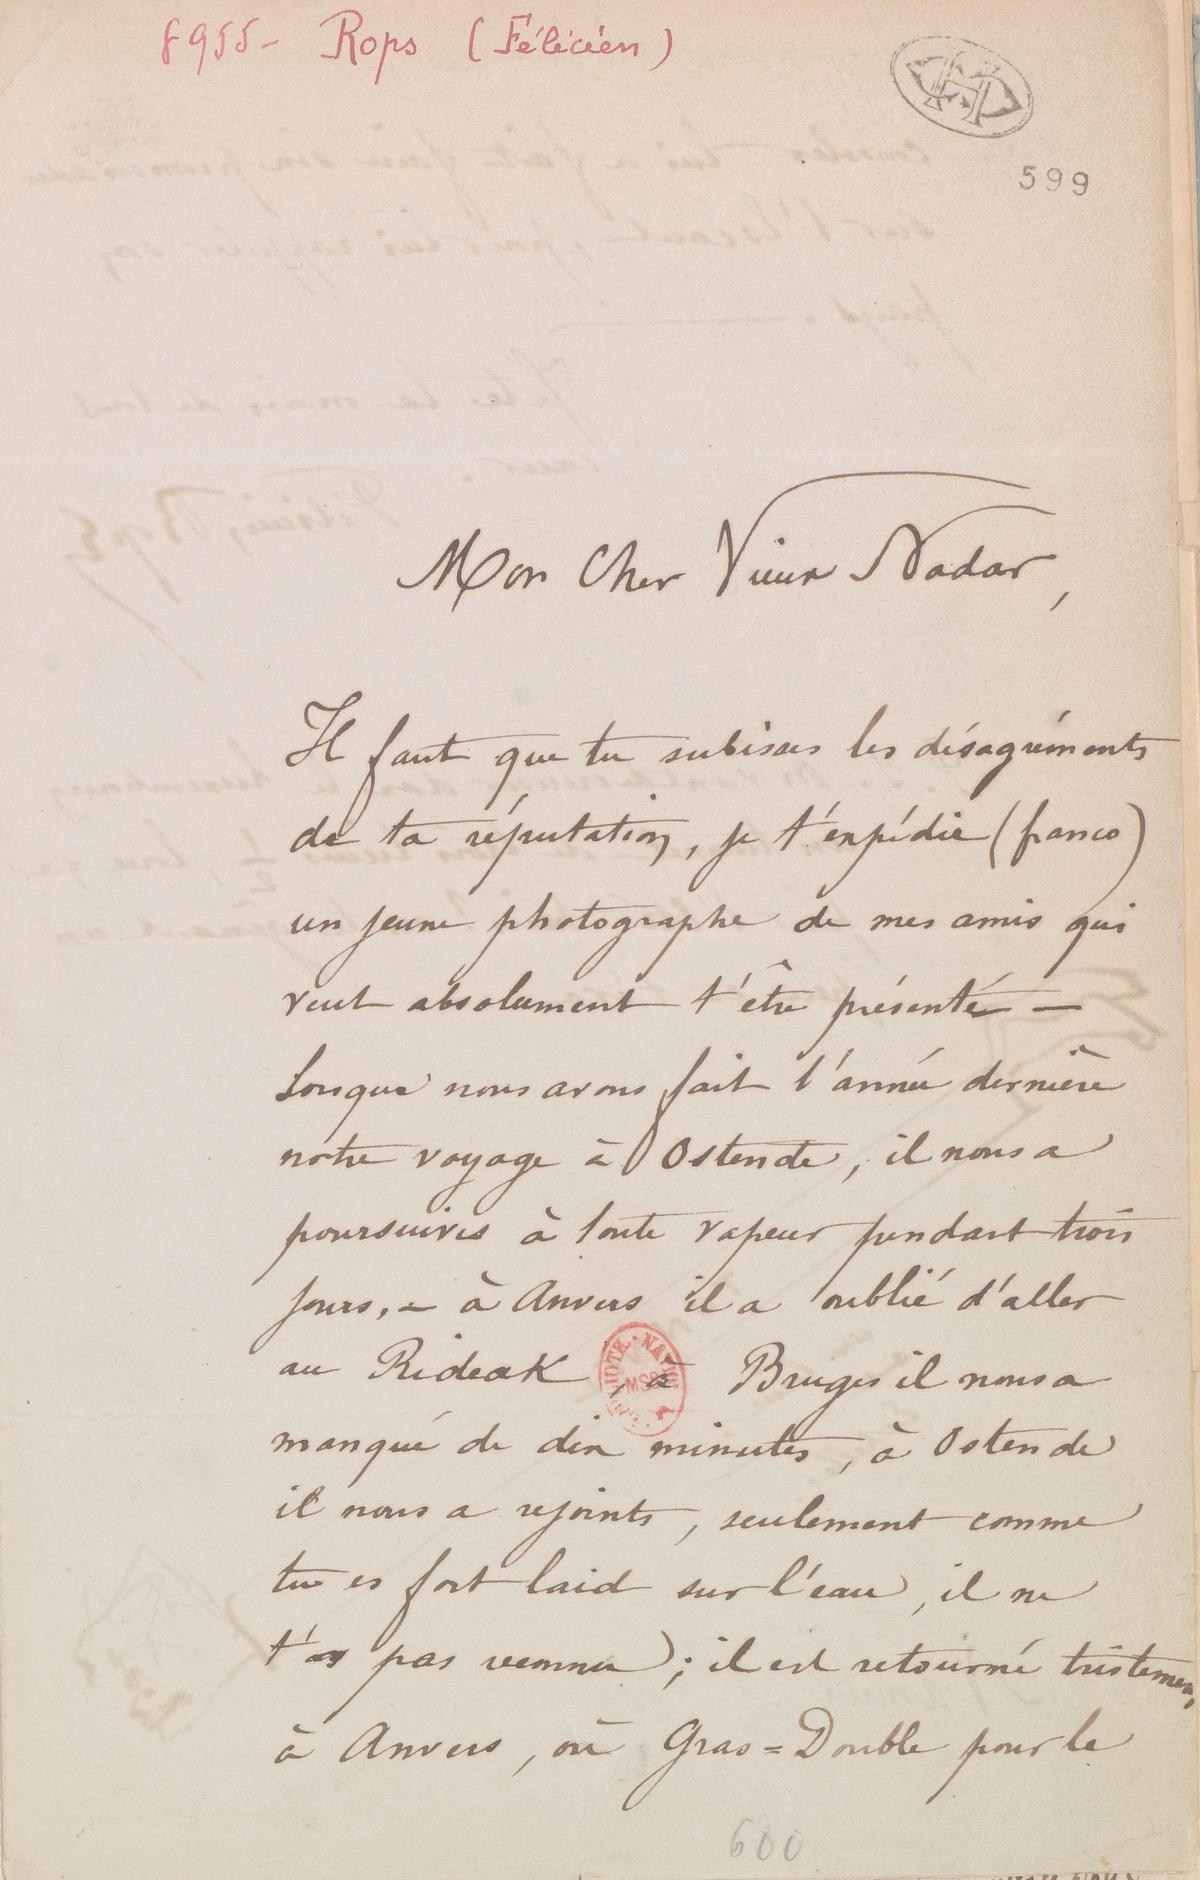 8955 - Rops (Félicien)
599
Mon Cher Vieux Nadar,
Il faut que tu subisses les désagréments
de ta réputation, je t'expédie (franco)
un jeune photographe de mes amis qui
veut absolument t'être présenté —
Lorsque nous avons fait l'année dernière
notre voyage à Ostende, il nous a
poursuivis à toute vapeur pendant trois
jours, — à Anvers il a oublié d'aller
au Rideak, à Bruges il nous a
manqué de dix minutes, à Ostende
il nous a rejoints, seulement comme
tu es fort laid sur l'eau, il ne
t'a pas reconnu ; il est retourné tristement
à Anvers, où Gras=Double pour le
600